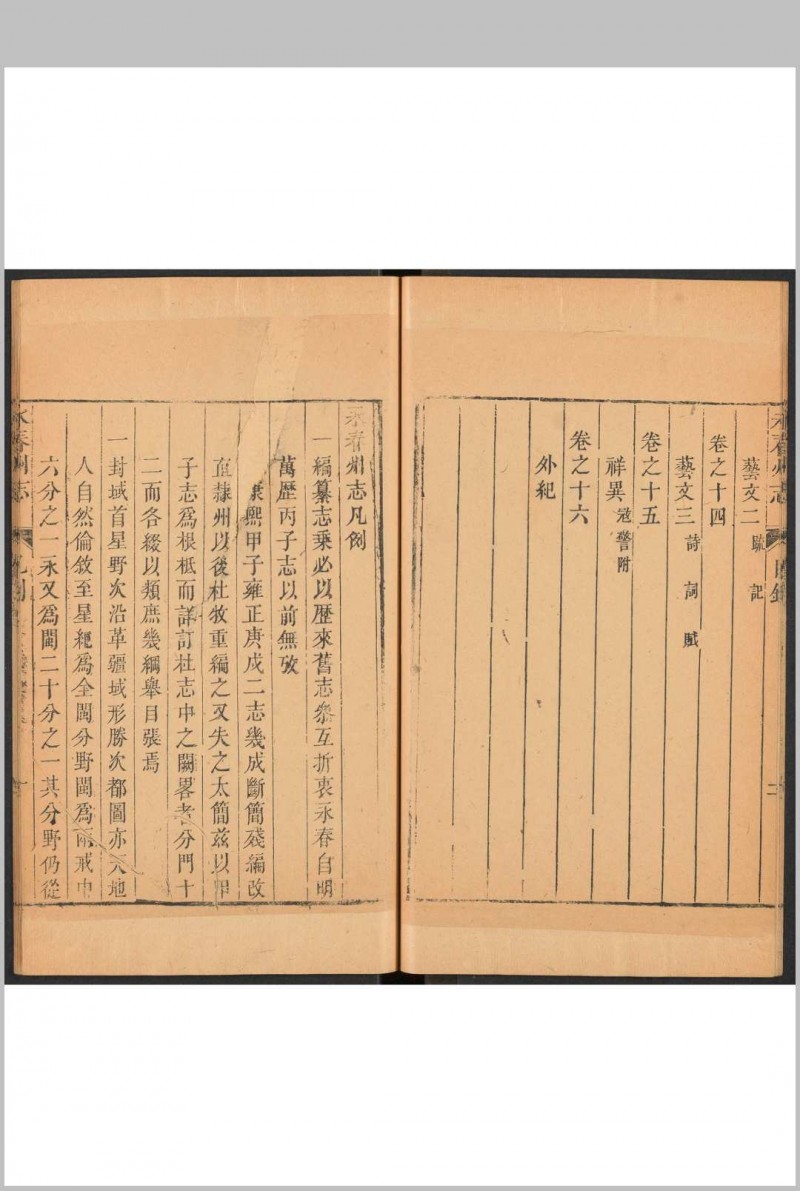 永春州志
目錄
二
藝文二 疏 記
卷之十四
藝文三 詩 詞 賦
卷之十五
祥異 寇警附
卷之十六
外紀
永春州志凡例
一編纂志乗必以歷來舊志叅互折衷永春自明
萬歷丙子志以前無攷
康熙甲子雍正庚戌二志幾成斷簡殘編改
直隸州以後杜牧重編之又失之太簡兹以甲
子志爲根柢而詳訂杜志中之闕畧者分門十
二而各綴以類庶幾綱舉目張焉
一封域首星野次沿革疆域形勝次都圖亦天地
人自然倫敘至星紀爲全閩分野閩爲兩戒中
六分之一永又爲閩二十分之一其分野仍從
永春州志
凡例